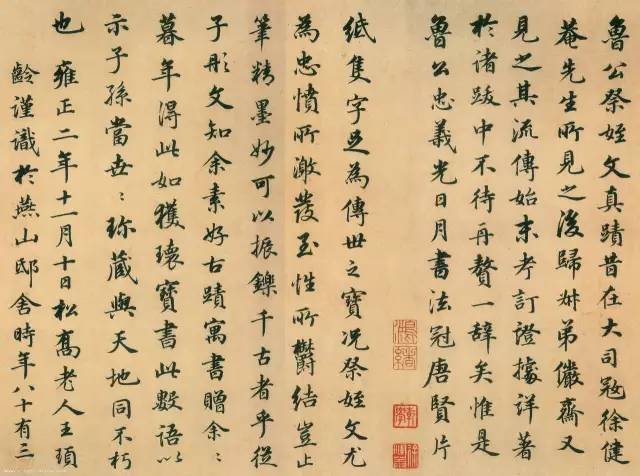 魯公祭姪文真蹟昔在大司寇徐健
菴先生所見之後歸舛弟儼齋又
見之其流傳始末考訂證據詳著
於諸跋中不待再贅一辭矣惟是
魯公忠義光日月書法冠唐賢片
紙隻字足為傳世之寶況祭姪文尤
為忠憤所激發至性所鬱結豈止
筆精墨妙可以振鑠千古者乎從
子彤文知余素好古蹟寓書贈余〻
暮年得此如獲瓌寶書此數語以
示子孫當世〻珍藏與天地同不朽
也 雍正二年十一月十日松喬老人王頊
齡謹識於燕山邸舍時年八十有三